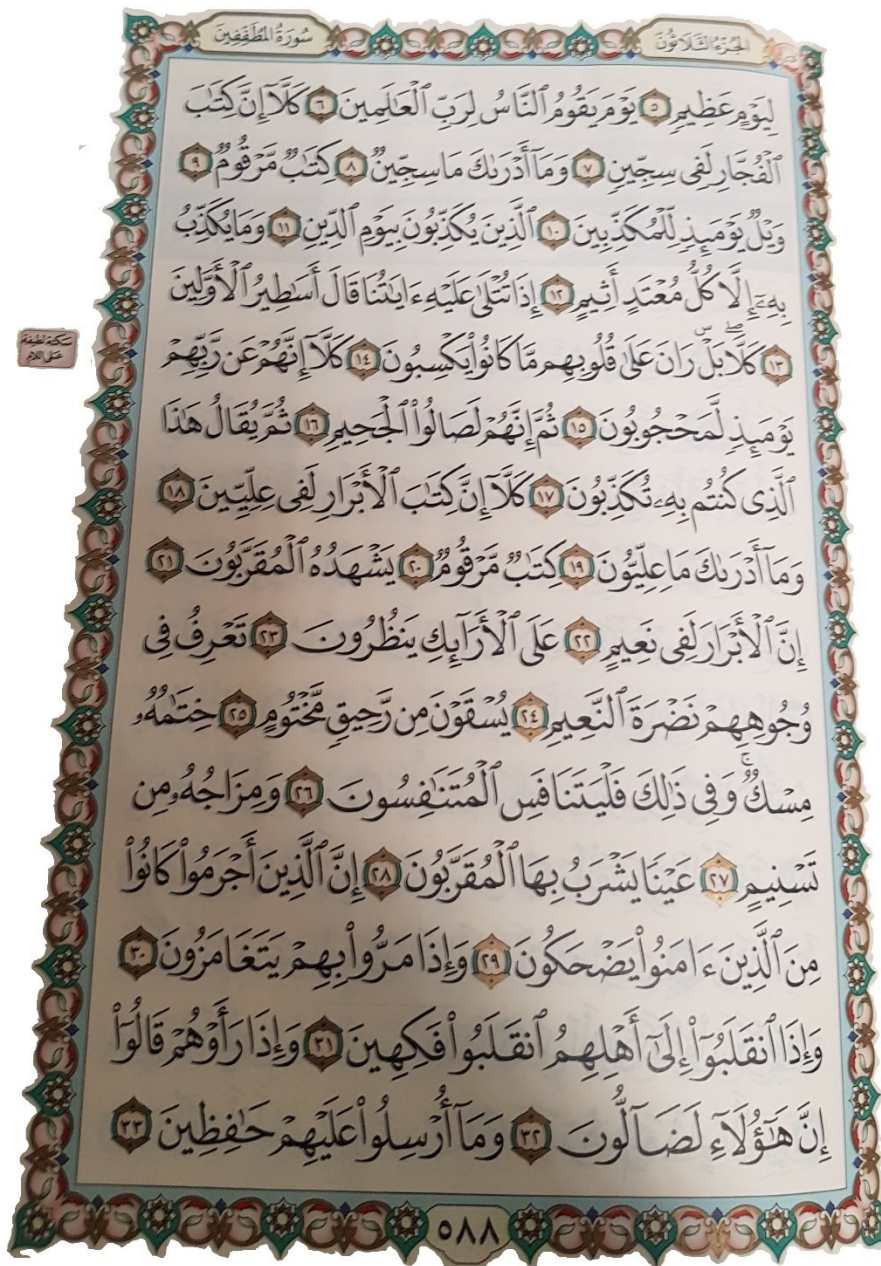 سُورَةُ المُطَفِّفِينَ
الجُزءُ الثَّلَاثُونَ
لِيَوْمٍ عَظِيمٍ ٥ يَوْمَ يَقُومُ ٱلنَّاسُ لِرَبِّ ٱلْعَٰلَمِينَ ٦ كَلَّآ إِنَّ كِتَٰبَ
ٱلْفُجَّارِ لَفِى سِجِّينٍ ٧ وَمَآ أَدْرَىٰكَ مَا سِجِّينٌ ٨ كِتَٰبٌ مَّرْقُومٌ ٩
وَيْلٌ يَوْمَئِذٍ لِّلْمُكَذِّبِينَ ١٠ ٱلَّذِينَ يُكَذِّبُونَ بِيَوْمِ ٱلدِّينِ ١١ وَمَا يُكَذِّبُ
بِهِۦٓ إِلَّا كُلُّ مُعْتَدٍ أَثِيمٍ ١٢ إِذَا تُتْلَىٰ عَلَيْهِ ءَايَٰتُنَا قَالَ أَسَٰطِيرُ ٱلْأَوَّلِينَ
١٣ كَلَّاۖ بَلْۜ رَانَ عَلَىٰ قُلُوبِهِم مَّا كَانُوا۟ يَكْسِبُونَ ١٤ كَلَّآ إِنَّهُمْ عَن رَّبِّهِمْ
سكتة لطيفة
على اللام
يَوْمَئِذٍ لَّمَحْجُوبُونَ ١٥ ثُمَّ إِنَّهُمْ لَصَالُوا۟ ٱلْجَحِيمِ ١٦ ثُمَّ يُقَالُ هَٰذَا
ٱلَّذِى كُنتُم بِهِۦ تُكَذِّبُونَ ١٧ كَلَّآ إِنَّ كِتَٰبَ ٱلْأَبْرَارِ لَفِى عِلِّيِّينَ ١٨
وَمَآ أَدْرَىٰكَ مَا عِلِّيُّونَ ١٩ كِتَٰبٌ مَّرْقُومٌ ٢٠ يَشْهَدُهُ ٱلْمُقَرَّبُونَ ٢١
إِنَّ ٱلْأَبْرَارَ لَفِى نَعِيمٍ ٢٢ عَلَى ٱلْأَرَآئِكِ يَنظُرُونَ ٢٣ تَعْرِفُ فِى
وُجُوهِهِمْ نَضْرَةَ ٱلنَّعِيمِ ٢٤ يُسْقَوْنَ مِن رَّحِيقٍ مَّخْتُومٍ ٢٥ خِتَٰمُهُۥ
مِسْكٌۚ وَفِى ذَٰلِكَ فَلْيَتَنَافَسِ ٱلْمُتَنَٰفِسُونَ ٢٦ وَمِزَاجُهُۥ مِن
تَسْنِيمٍ ٢٧ عَيْنًا يَشْرَبُ بِهَا ٱلْمُقَرَّبُونَ ٢٨ إِنَّ ٱلَّذِينَ أَجْرَمُوا۟ كَانُوا۟
مِنَ ٱلَّذِينَ ءَامَنُوا۟ يَضْحَكُونَ ٢٩ وَإِذَا مَرُّوا۟ بِهِمْ يَتَغَامَزُونَ ٣٠
وَإِذَا ٱنقَلَبُوٓا۟ إِلَىٰٓ أَهْلِهِمُ ٱنقَلَبُوا۟ فَكِهِينَ ٣١ وَإِذَا رَأَوْهُمْ قَالُوٓا۟
إِنَّ هَٰٓؤُلَآءِ لَضَآلُّونَ ٣٢ وَمَآ أُرْسِلُوا۟ عَلَيْهِمْ حَٰفِظِينَ ٣٣
٥٨٨